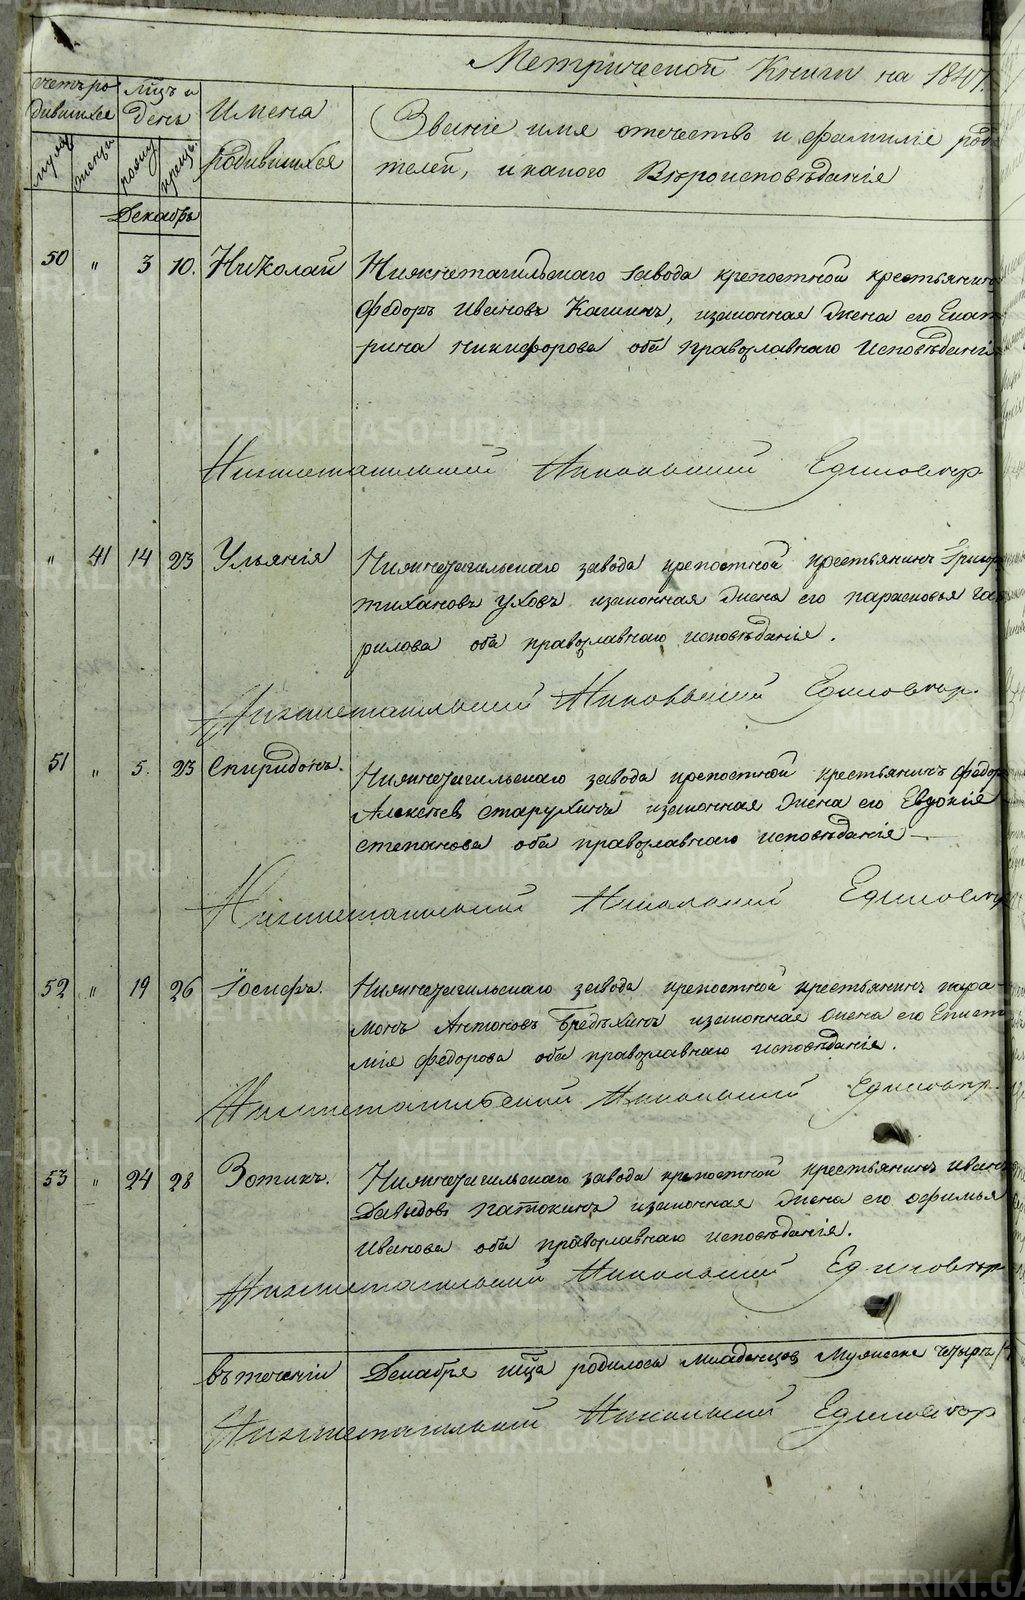 Метрической Книги на 1847.
счетъ ро
дившихся
мѣц и
день
Имена
родившихся
Званіе имя отечество и фамиліе род
телей, и какого Вѣроисповѣданія
Декабрь
50 " 3 10. Николай Нижнетагильскаго завода крепостной крестьянинъ
Федоръ Ивановъ Кашинъ, изаконная Жена его Екат
рина никифорова оба православнаго Исповѣданія
Нижнетагильский Никольский Единовер
" 41 14 23 Ульянія Нижнетагильскаго завода крепостной крестьянинъ Григор
тихановъ Уховъ изаконная Жена его парасковья гав
рилова оба православнаго исповѣданія.
Нижнетагильский Никольский Единовер.
51 " 5. 23 Спиридонъ. Нижнетагильскаго завода крепостной крестьянинъ федор
Алексѣев старухинъ изаконная Жена его Евдокія
степанова оба православнаго исповѣданія
Нижнетагильский Никольский Единовер
52 " 19 26 Іосифъ. Нижнетагильскаго завода крепостной крестьянинъ пара
монъ Антоновъ Бредѣхинъ изаконная Жена его Епист
мія федорова оба православнаго исповѣданія.
Нижнетагильский Никольский Единовер.
53 " 24 28 Зотикъ. Нижнетагильскаго завода крепостной крестьянинъ Иван
Давыдовъ патокинъ изаконная Жена его офимья
Иванова оба православнаго исповѣданія.
Нижнетагильский Никольский Единовер
въ теченіи Декабря мца родилось младенцев Мужеске четыре
Нижнетагильский Никольский Единовер